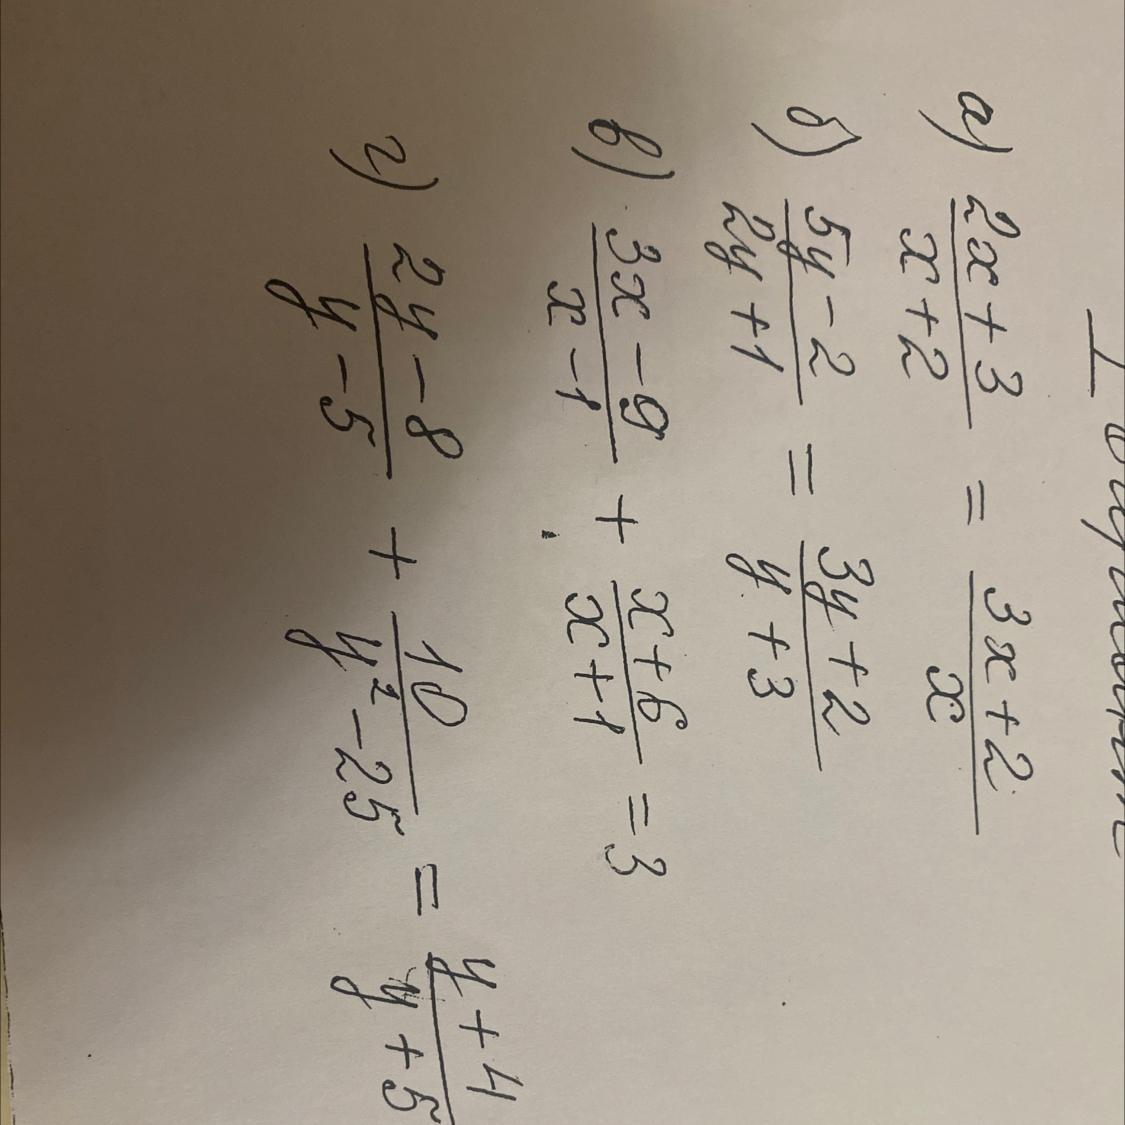 I вариант
а) (2x + 3)/(x + 2) = (3x + 2)/x
б) (5y - 2)/(2y + 1) = (3y + 2)/(y + 3)
в) (3x - 9)/(x - 1) + (x + 6)/(x + 1) = 3
г) (2y - 8)/(y - 5) + 10/(y² - 25) = (y + 4)/(y + 5)